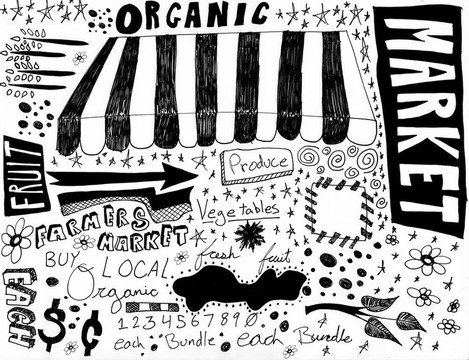 ORGANIC
MARKET
FRUIT
Produce
Vegetables
FARMERS
MARKET
BUY LOCAL
fresh fruit
Organic
EACH
$ ¢
1234567890
each Bundle each Bundle